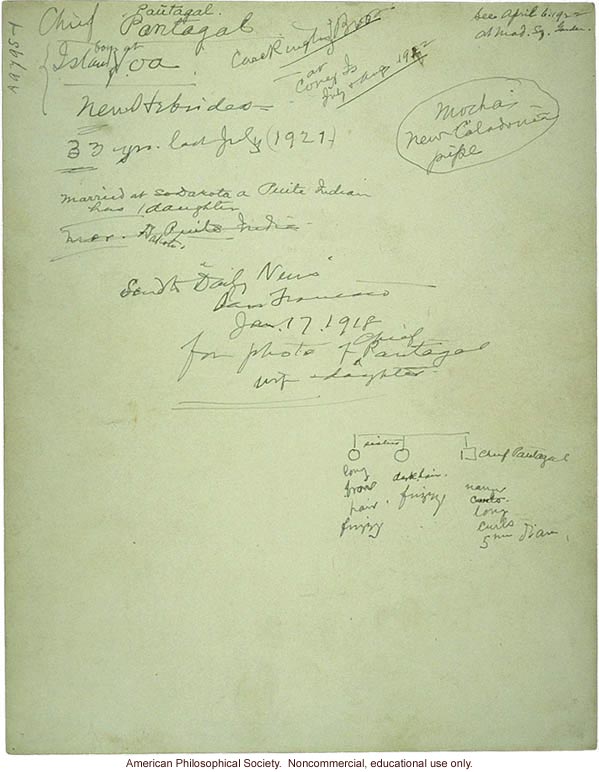 Chief Pantagal.
Pantagal
born at
Island Voa
New Hebrides
33 yrs. last July (1921)
Care Ringling Bros
or
Coney Is
July & Aug 1922
see April 6. 1922
at Mad. Sq. Garden.
Mocha's
New Caledonian
pipe
married at So Dakota a Piute Indian
has 1 daughter
Send to "Daily News"
San Francisco
Jan. 17. 1918
for photo of Chief Pantagal
wife & daughter
sisters
Chief Pantagal
long
hair
frizzy
dark hair.
frizzy
long
curls
5 mm diam.
American Philosophical Society. Noncommercial, educational use only.